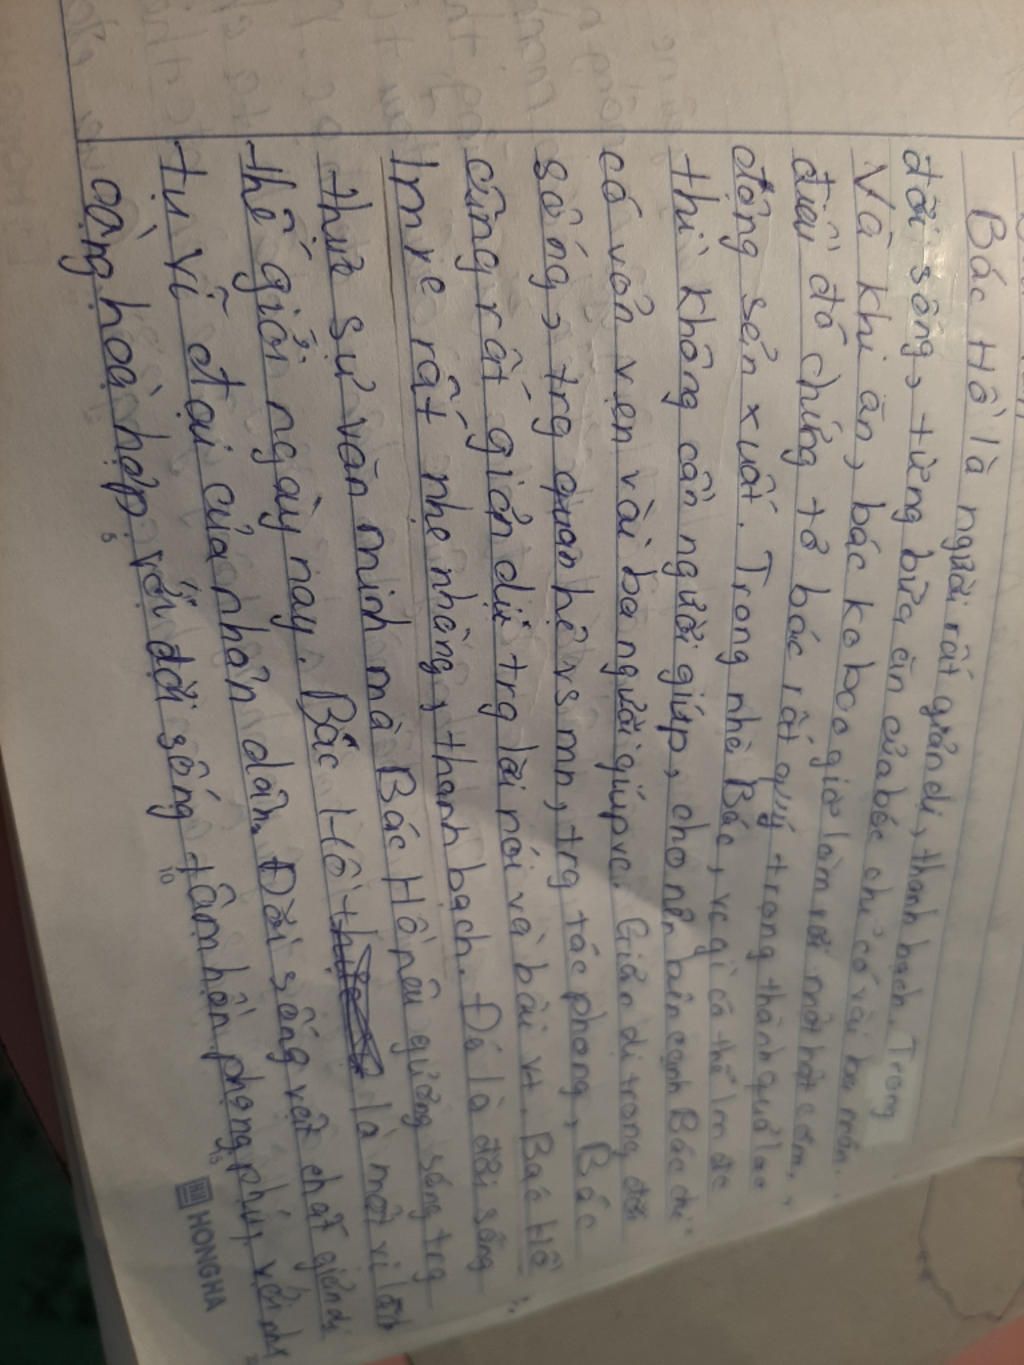 Bác Hồ là người rất giản dị, thanh bạch. Trong
đời sống, từng bữa ăn của bác chỉ có vài ba món.
Và khi ăn, bác ko bao giờ làm rơi một hột cơm,
điều đó chứng tỏ bác rất quý trọng thành quả lao
động sản xuất. Trong nhà Bác, vc gì có thể lm đc
thì không cần người giúp, cho nên bên cạnh Bác chỉ
có vỏn vẹn vài ba người giúp vc. Giản dị trong đời
sống, trg quan hệ vs mn, trg tác phong, Bác
cũng rất giản dị trg lời nói và bài vt. Bác Hồ
lm re rất nhẹ nhàng, thanh bạch. Đó là đời sống
thực sự văn minh mà Bác Hồ nêu gương sáng trg
thế giới ngày nay. Bác Hồ là một vị lãnh
tụ vĩ đại của nhân dân. Đời sống vật chất giản dị
càng hoà hợp với đời sống tâm hồn phong phú, với
5
10
15
HONG HA